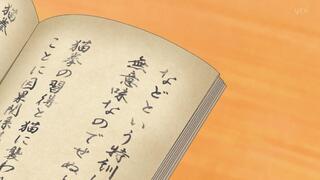 などという特訓
無意味なのでせぬ
猫拳の習得と猫に襲わ
ことに因果関係
ytv